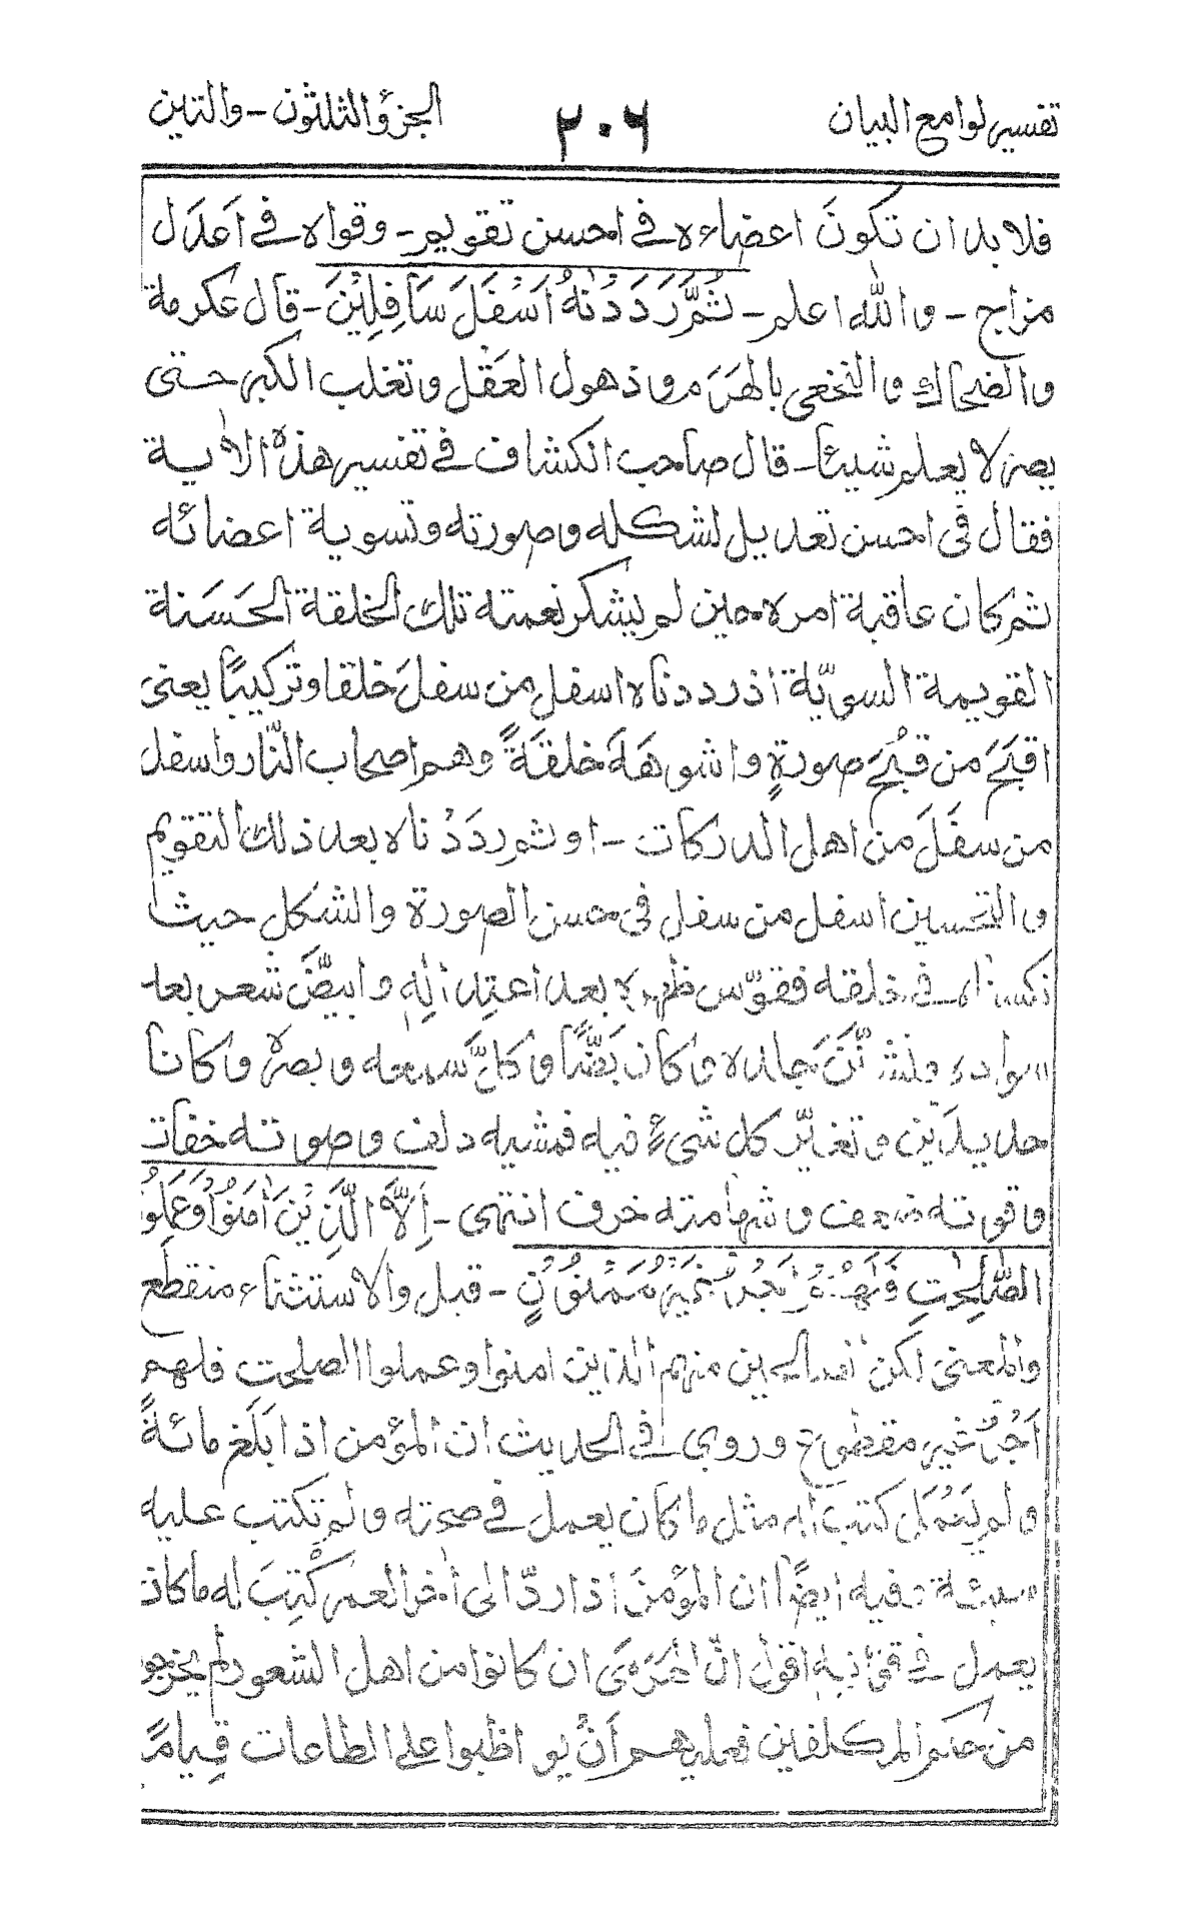 تفسير لوامع البيان ٢٠٦ الجزؤالثلثون - والتين
فلا بد ان تكونَ اعضاءه فى احسن تقويم - وقواه فى اَعدَل
مزاج - والله اعلم - ثُمَّ رَدَدْنٰهُ اَسْفَلَ سَافِلِيْنَ - قال عكرمة
والضحاك والنخعى بالهَرَم وذهول العقل وتغلب الكبر حتى
يصر لا يعلم شيئا - قال صاحب الكشاف فى تفسير هذه الاٰية
فقال فى احسن تعديل لشكله وصورته وتسوية اعضائه
ثم كان عاقبة امره حين لم يشكر نعمته تلك الخلقة الحَسَنة
القويمة السويّة اذ رددناه اسفل من سفلَ خلقا وتركيبًا يعنى
اقبَح من قبُحَ صورةٍ واشوهَهَ خلقَةً وهم اصحاب النّار واسفل
من سفَلَ من اهل الدركات - او ثم ردَدْناه بعد ذلك التقويم
والتحسين اسفل من سفل فى حسن الصورة والشكل حيث
نكسناه فى خلقه فقوّس ظهره بعد اعتداله وابيضّ شعره بعد
سواده وتشنّنَ جلده وكان بَضًّا وكلَّ سمعه وبصره وكانا
حديدَين وتغيّر كل شىءٍ فيه فمشيه دلف وصوته خفات
وقوته ضعف وشهامته خرف انتهى - اِلَّا الَّذِيْنَ اٰمَنُوْا وَعَمِلُوا
الصّٰلِحٰتِ فَلَهُمْ اَجْرٌ غَيْرُ مَمْنُوْنٍ - قيل والاستثناء منقطع
والمعنى لكن الصالحين منهم الذين امنوا وعملوا الصلحت فلهم
اَجْرٌ غير مقطوع وروى فى الحديث ان المؤمن اذا بلَغ مائةً
ولم يَعْمَل كتب له مثل ما كان يعمل فى صحته ولم تكتب عليه
سيئة وفيه ايضًا ان المؤمنَ اذا ردّ الى اٰخر العمر كُتِبَ له ما كان
يعمل فى قوّته اقول انّ الهَرمَى ان كانوا من اهل الشعور لم يخرجوا
من حكم المكلفين فعليهم اَنْ يواظبوا على الطاعات قِيامًا